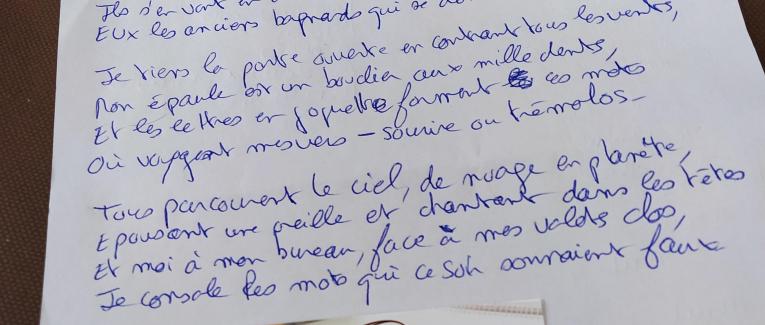 Ils s'en vont
EUX les anciens bagnards qui se
Je tiens la porte ouverte en contrant tous les vents,
Mon épaule est un bouclier aux mille dents,
Et les lettres en goguette forment ces mots
Où voyagent mes vers - sourire ou trémolos -
Tous parcourent le ciel, de nuage en planète,
Epousent une oreille et chantent dans les têtes
Et moi à mon bureau, face à mes volets clos,
Je console les mots qui ce soir sonnaient faux